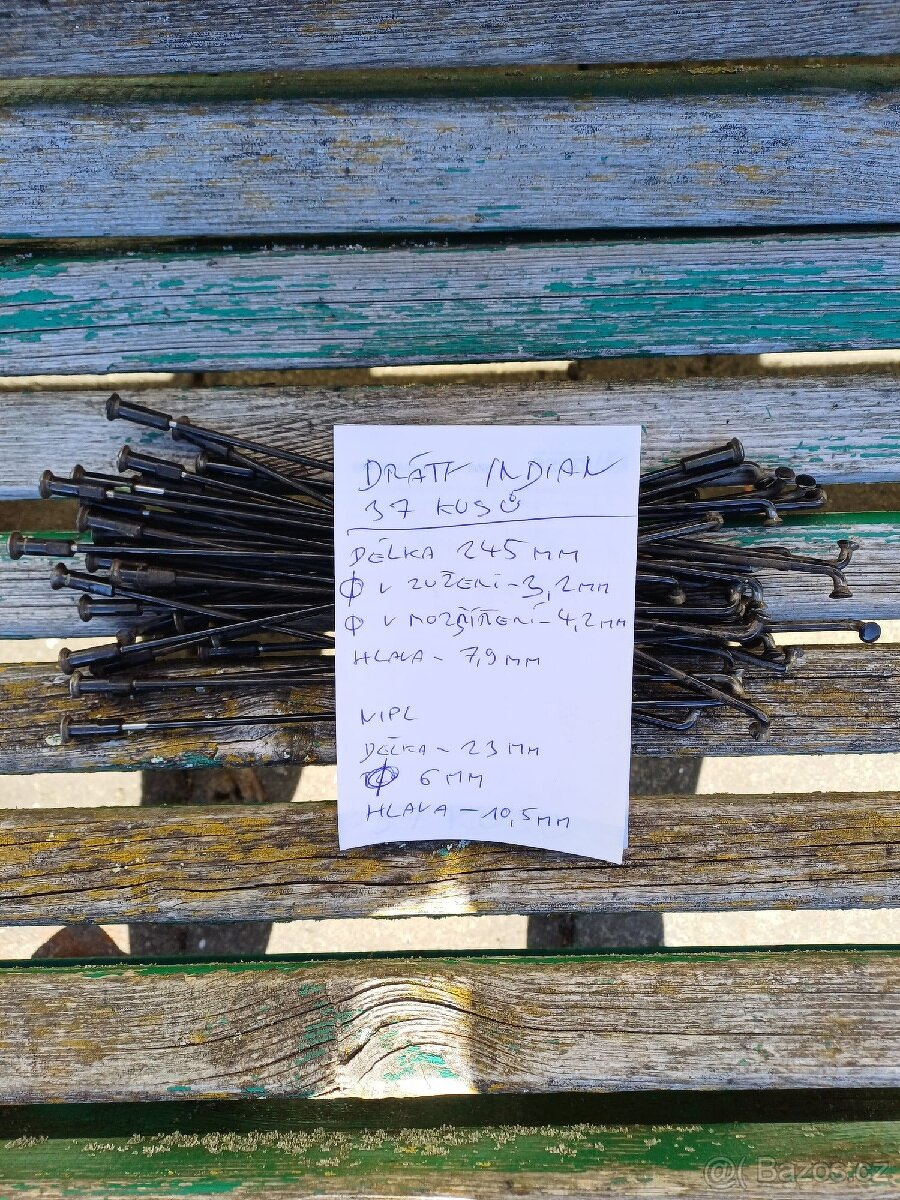 DRÁTY INDIAN
37 KUSŮ
DÉLKA 245 MM
Φ V ZÚŽENÍ - 3,2 MM
Φ V ROZŠÍŘENÍ - 4,2 MM
HLAVA - 7,9 MM
NIPL
DÉLKA - 23 MM
Φ 6 MM
HLAVA - 10,5 MM
@( Bazos.cz